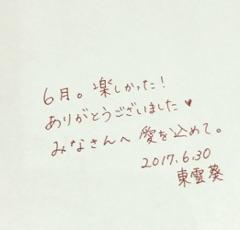 6月。楽しかった!
ありがとうございました♥
みなさんへ 愛を込めて。
2017.6.30
東雲葵